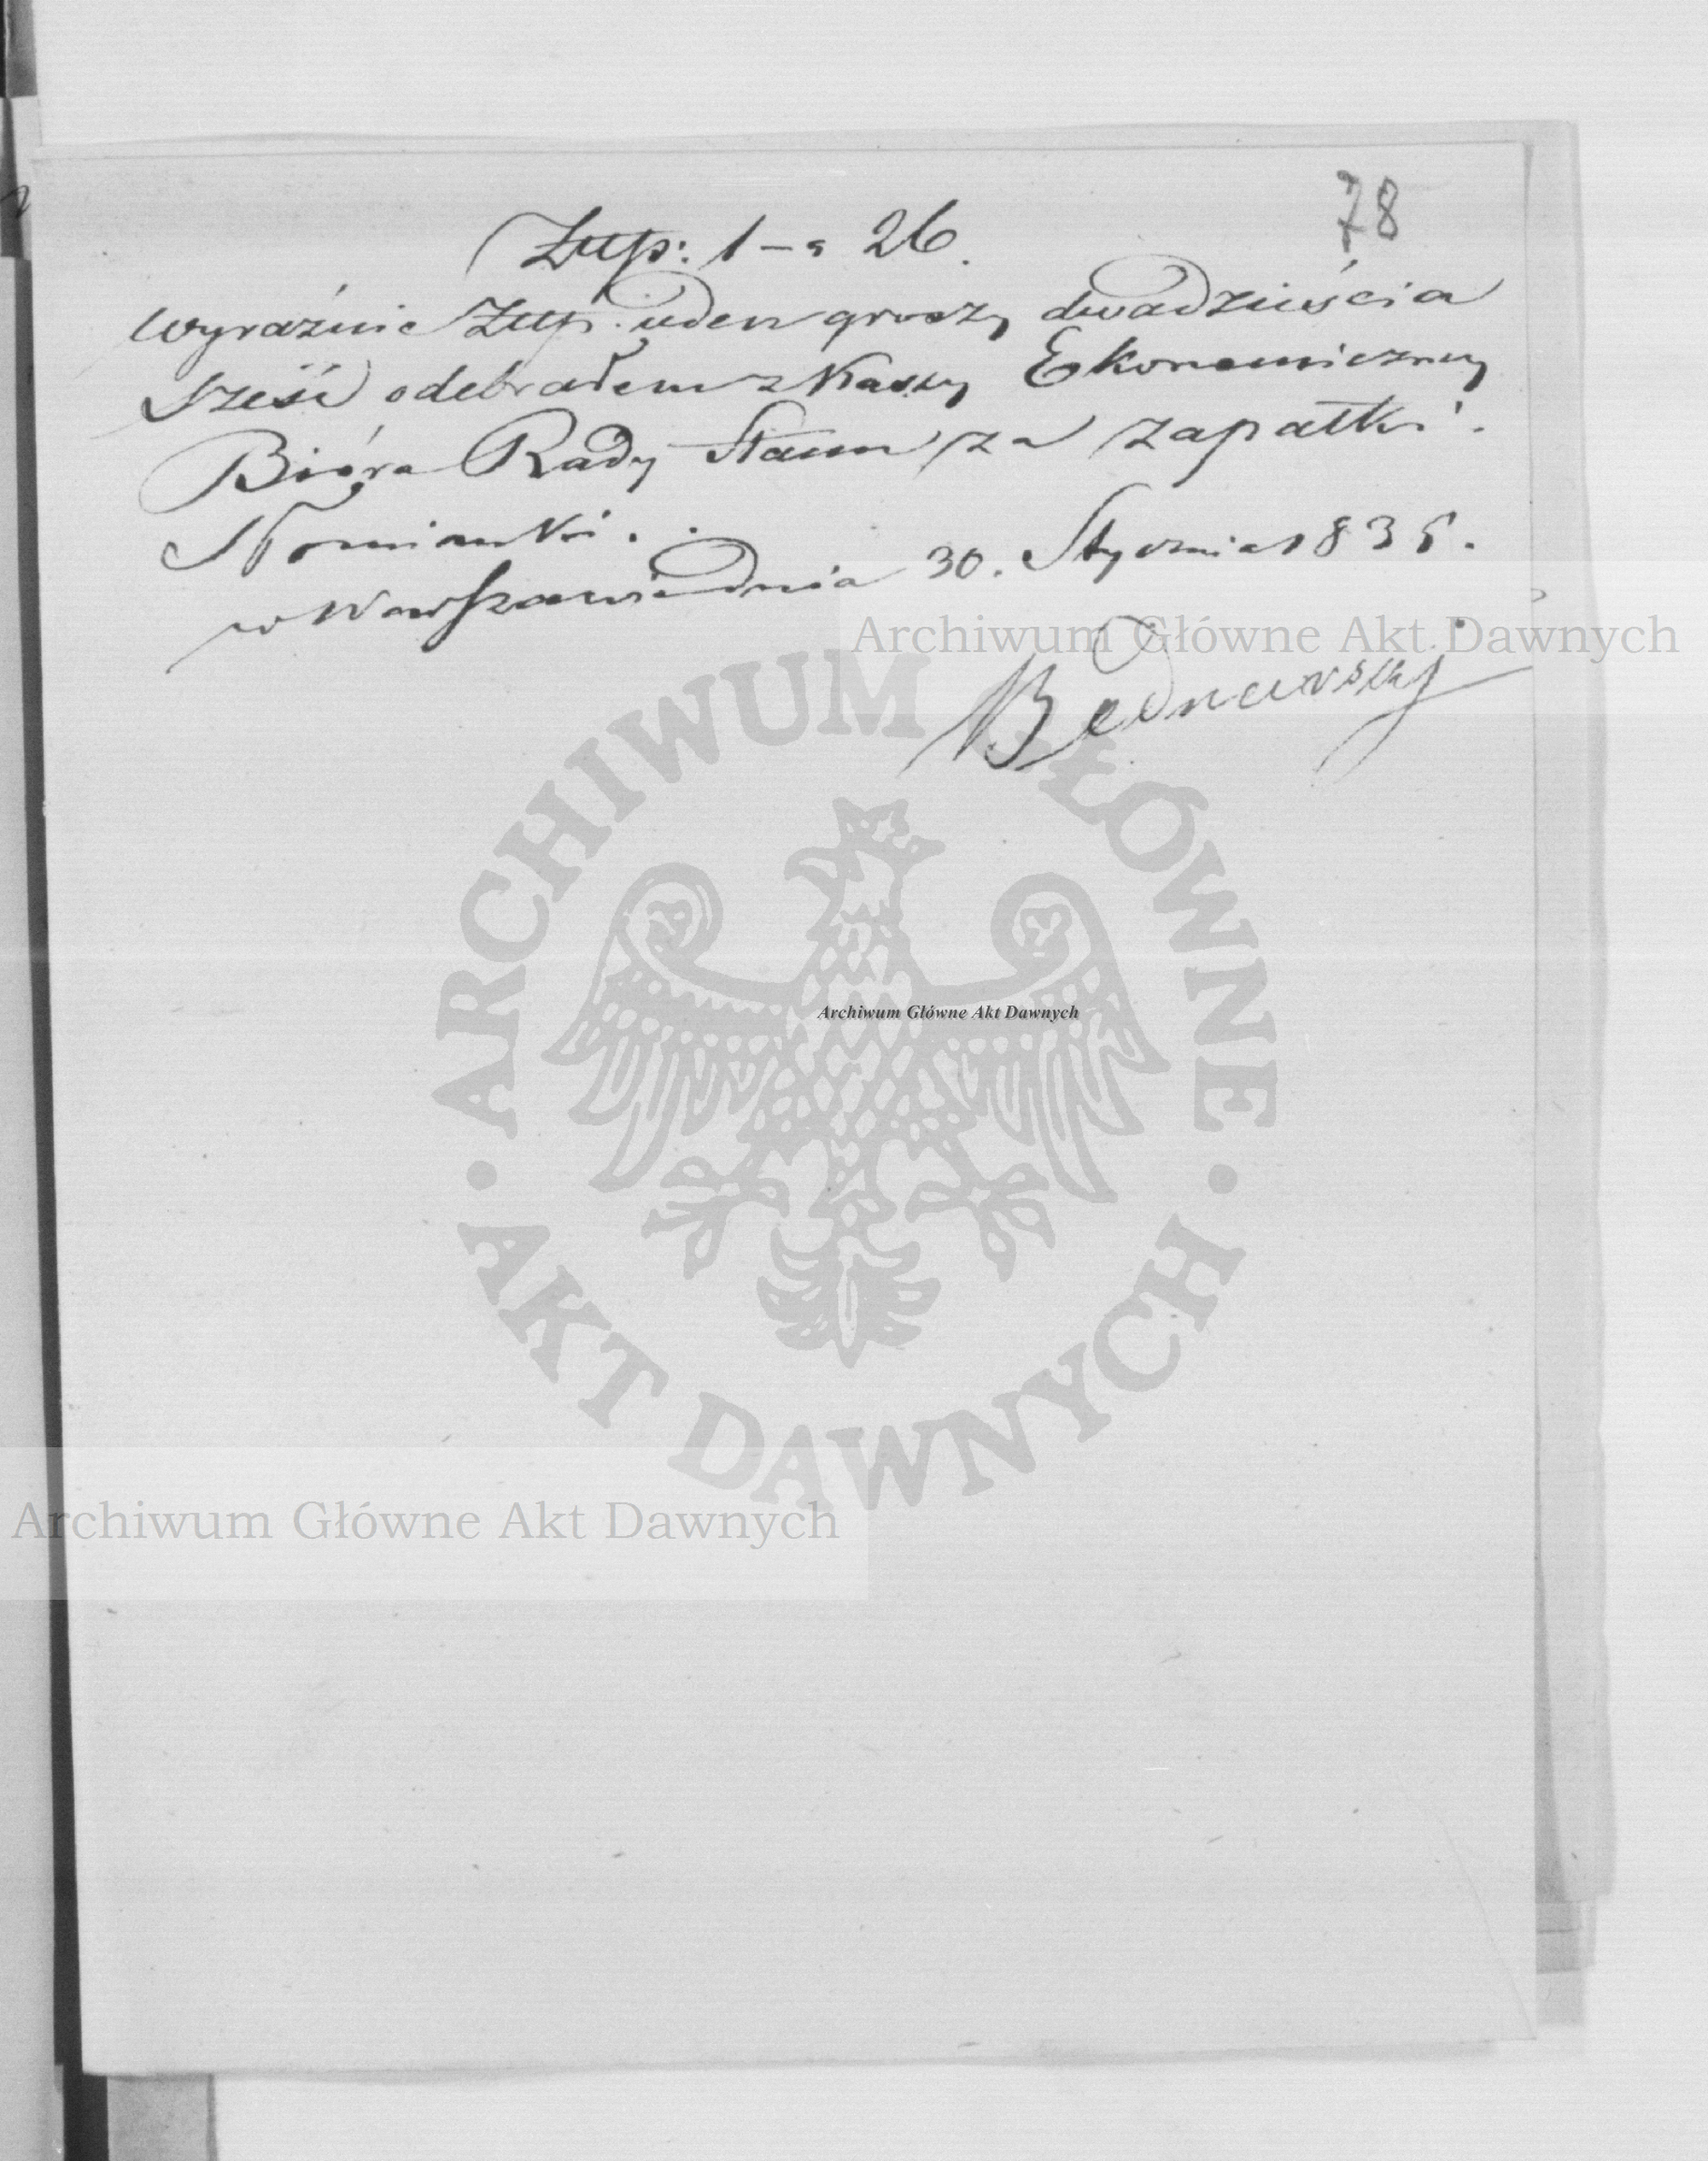 78
Złtp: 1 - g 26.
wyraźnie Złtp. ieden groszy dwadzieścia
sześć odebrałem z Kassy Ekonomiczney
Bióra Rady Stanu za zapałki.
Słomianki.
w Warszawie dnia 30. Stycznia 1835.
Bednawski
Archiwum Główne Akt Dawnych
ARCHIWUM GŁÓWNE AKT DAWNYCH
Archiwum Główne Akt Dawnych
Archiwum Główne Akt Dawnych